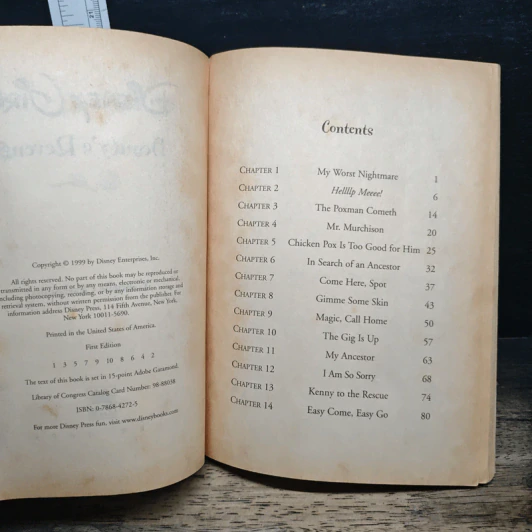 Copyright © 1999 by Disney Enterprises, Inc.
All rights reserved. No part of this book may be reproduced or
transmitted in any form or by any means, electronic or mechanical,
including photocopying, recording, or by any information storage and
retrieval system, without written permission from the publisher. For
information address Disney Press, 114 Fifth Avenue, New York,
New York 10011-5690.
Printed in the United States of America.
First Edition
1 3 5 7 9 10 8 6 4 2
The text of this book is set in 15-point Adobe Garamond.
Library of Congress Catalog Card Number: 98-88038
ISBN: 0-7868-4272-5
For more Disney Press fun, visit www.disneybooks.com
Contents
CHAPTER 1 My Worst Nightmare 1
CHAPTER 2 Hellllp Meeee! 6
CHAPTER 3 The Poxman Cometh 14
CHAPTER 4 Mr. Murchison 20
CHAPTER 5 Chicken Pox Is Too Good for Him 25
CHAPTER 6 In Search of an Ancestor 32
CHAPTER 7 Come Here, Spot 37
CHAPTER 8 Gimme Some Skin 43
CHAPTER 9 Magic, Call Home 50
CHAPTER 10 The Gig Is Up 57
CHAPTER 11 My Ancestor 63
CHAPTER 12 I Am So Sorry 68
CHAPTER 13 Kenny to the Rescue 74
CHAPTER 14 Easy Come, Easy Go 80